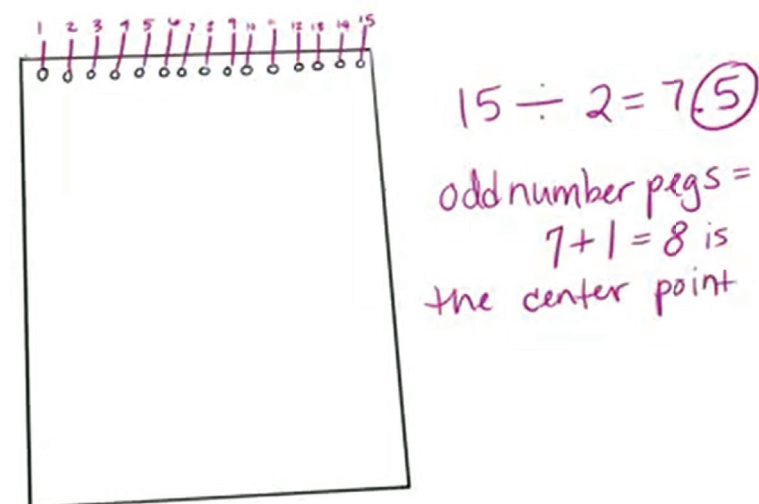 1 2 3 4 5 6 7 8 9 10 11 12 13 14 15
15 ÷ 2 = 7.5
odd number pegs =
7 + 1 = 8 is
the center point